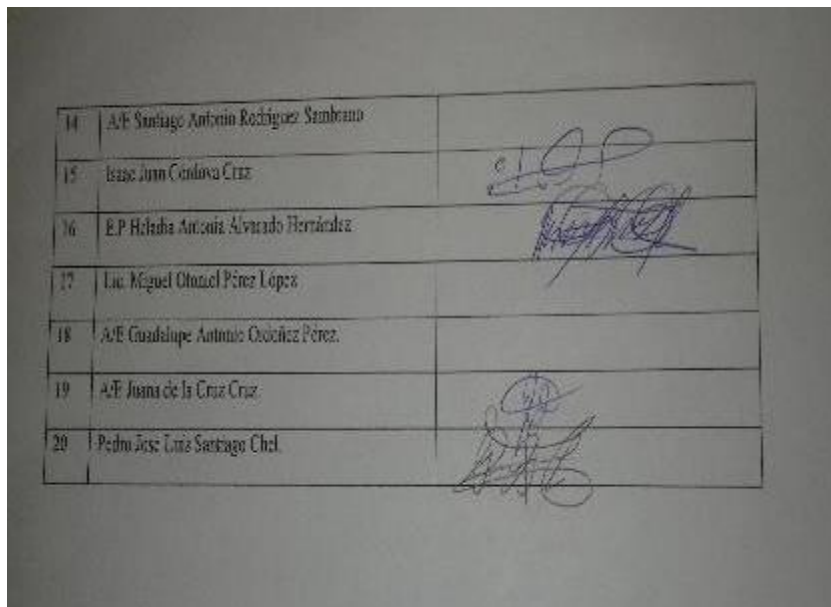 14 A/E Santiago Antonio Rodríguez Sambrano
15 Isaac Juan Córdova Cruz
16 E.P Heladia Antonia Alvarado Hernández
17 Lic. Miguel Otoniel Pérez López
18 A/E Guadalupe Antonio Ordoñez Pérez.
19 A/E Juana de la Cruz Cruz
20 Pedro José Luis Santiago Chel.